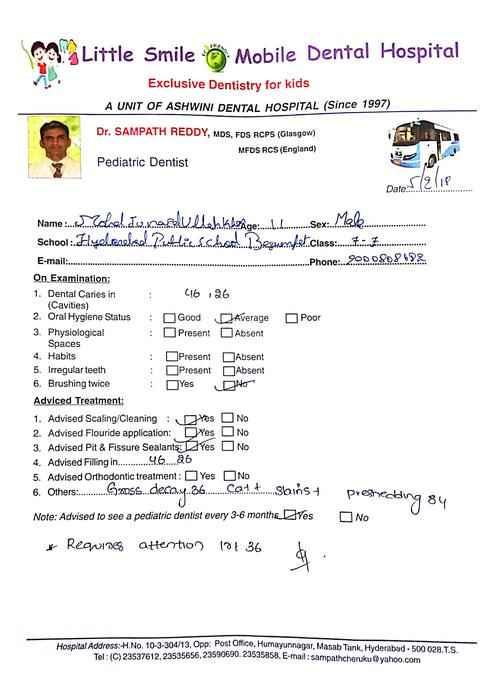 Little Smile Mobile Dental Hospital
Exclusive Dentistry for kids
A UNIT OF ASHWINI DENTAL HOSPITAL (Since 1997)
Dr. SAMPATH REDDY, MDS, FDS RCPS (Glasgow)
MFDS RCS (England)
Pediatric Dentist
Date: 5/2/18
Name: Mohd Age: 11 Sex: Male
School: Hyderabad Public School Begumpet Class: 7-7
E-mail: Phone:
On Examination:
1. Dental Caries in : 46, 26
(Cavities)
2. Oral Hygiene Status : Good Average Poor
3. Physiological : Present Absent
Spaces
4. Habits : Present Absent
5. Irregular teeth : Present Absent
6. Brushing twice : Yes No
Adviced Treatment:
1. Advised Scaling/Cleaning : Yes No
2. Advised Flouride application: Yes No
3. Advised Pit & Fissure Sealants: Yes No
4. Advised Filling in 46 26
5. Advised Orthodontic treatment : Yes No
6. Others: Gross decay 36 Ca++ Stains + preshedding 84
Note: Advised to see a pediatric dentist every 3-6 months Yes No
* Requires attention 36
Hospital Address:-H.No. 10-3-304/13, Opp: Post Office, Humayunnagar, Masab Tank, Hyderabad - 500 028.T.S.
Tel : (C) 23537612, 23535656, 23590690. 23535858, E-mail : sampathcheruku@yahoo.com